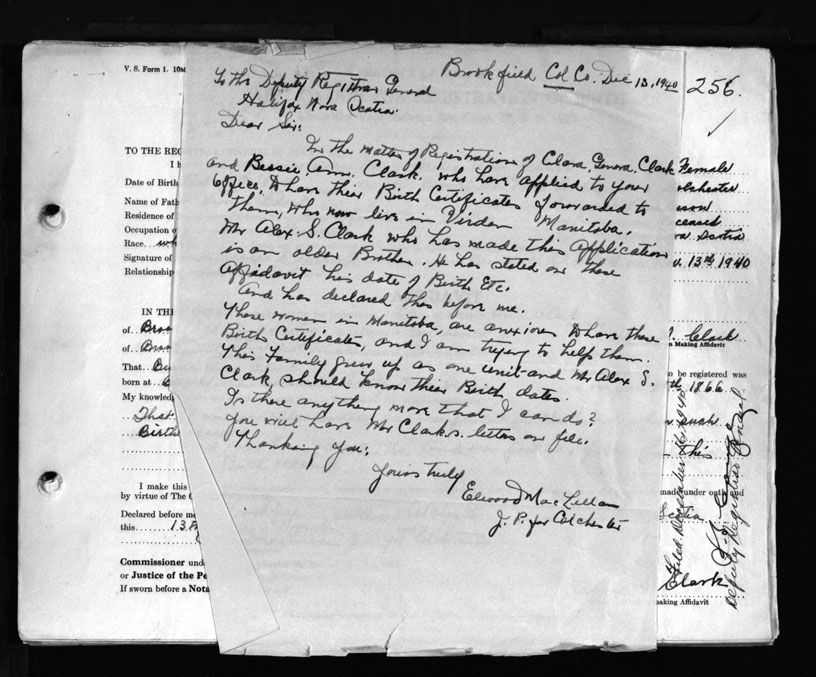 V. S. Form 1. 10M
Brookfield Col Co. Dec 13, 1940
256.
To the Deputy Registrar General
Halifax Nova Scotia.
Dear Sir:
In the matter of Registration of Clara, Genora, Clark
and Bessie, Ann, Clark. who have applied to your
office, to have their Birth Certificates forwarded to
them, who now live in Virden Manitoba.
Mr Alex S. Clark who has made this Application
is an older Brother. He has stated on these
Affadavit his date of Birth Etc.
And has declared this before me.
These women in Manitoba, are anxious to have these
Birth Certificates, and I am trying to help them.
This Family grew up as one unit and Mr Alex S.
Clark, should know their Birth dates.
Is there anything more that I can do?
you will have Mr Clarks. letter on file.
Thanking you:
Yours truly
Elwood MacLellan
J. P. for Colchester
TO THE REG
I h
Date of Birth
Name of Fath
Residence of
Occupation o
Race. wh
Signature of
Relationship
IN THE
of Broo
of Broo
That
born at
My knowledg
That
Birth
I make this
by virtue of The C
Declared before me
this 13
Commissioner und
or Justice of the Pe
If sworn before a Nota
Female
olchester
Scotia
13th 1940
Clark
n Making Affidavit
o be registered was
th 1866
such
this
made under oath and
Scotia
Clark
aking Affidavit
Filed December
Deputy Registrar General